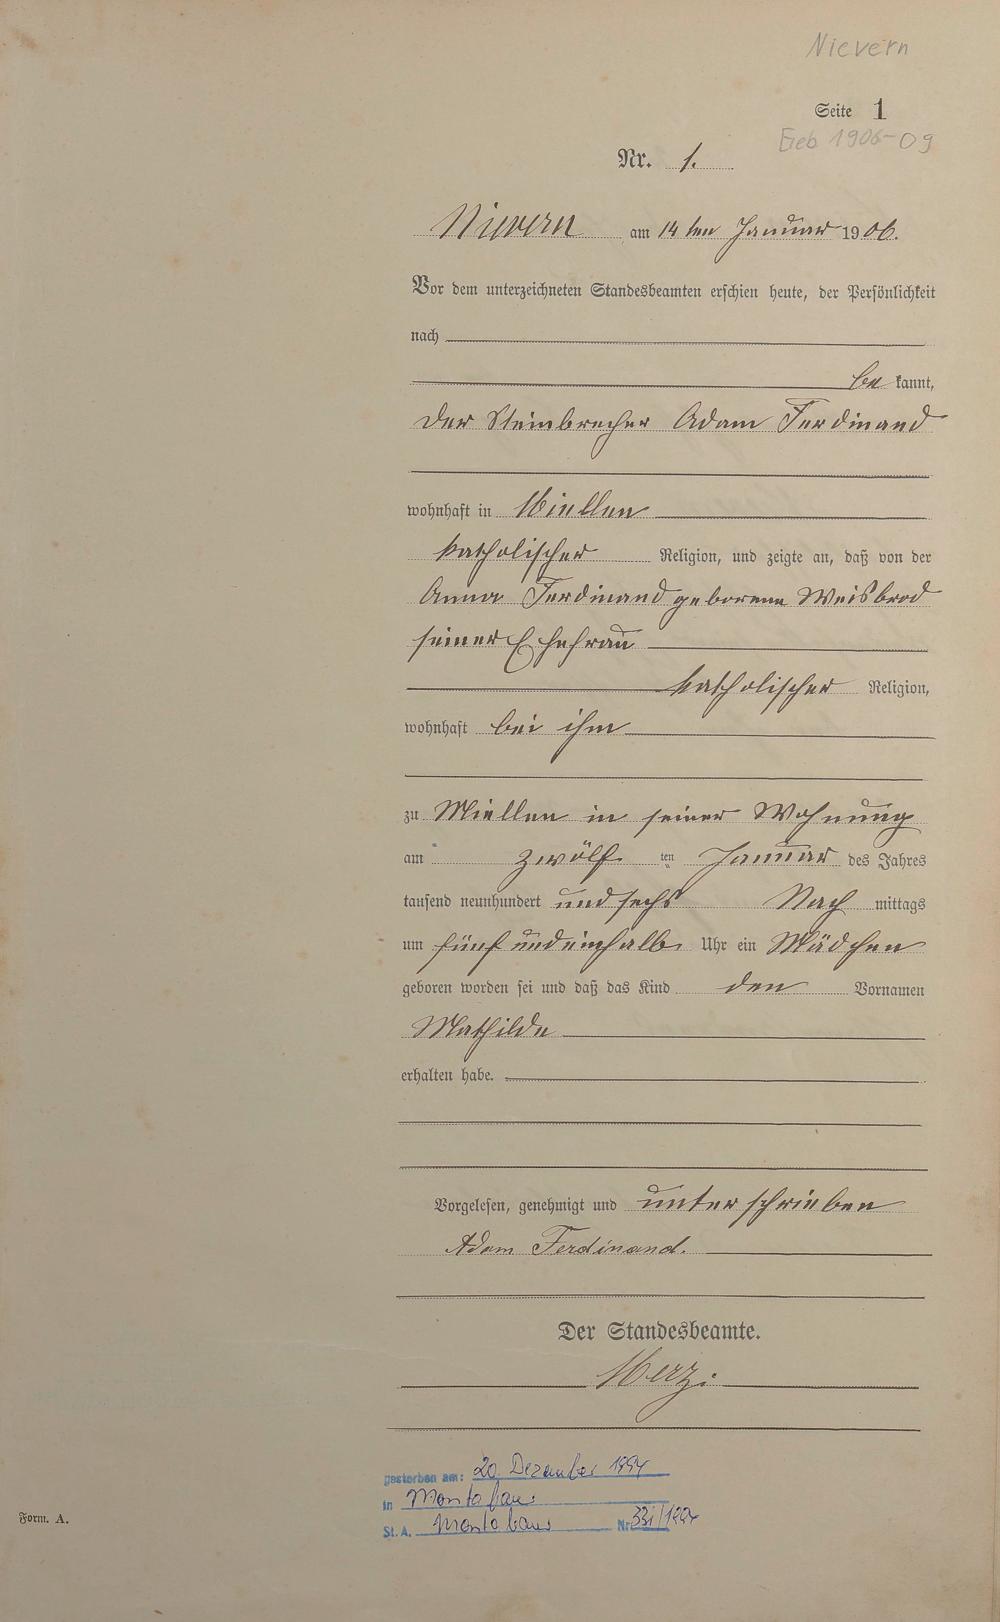 Nievern
Seite 1
Geb 1906-09
Nr. 1.
Nievern am 14ten Januar 1906.
Vor dem unterzeichneten Standesbeamten erschien heute, der Persönlichkeit
nach
be kannt,
der Steinbrecher Adam Ferdinand
wohnhaft in Miellen
katholischer Religion, und zeigte an, daß von der
Anna Ferdinand geborenen Weisbrod
seiner Ehefrau
katholischer Religion,
wohnhaft bei ihm
zu Miellen in seiner Wohnung
am zwölf ten Januar des Jahres
tausend neunhundert und sechs Nach mittags
um fünf und einhalb Uhr ein Mädchen
geboren worden sei und daß das Kind den Vornamen
Mathilde
erhalten habe.
Vorgelesen, genehmigt und unterschrieben
Adam Ferdinand.
Der Standesbeamte.
Merz.
gestorben am: 20. Dezember 1994
in Montabaur
St. A. Montabaur Nr. 331/1994
Form. A.